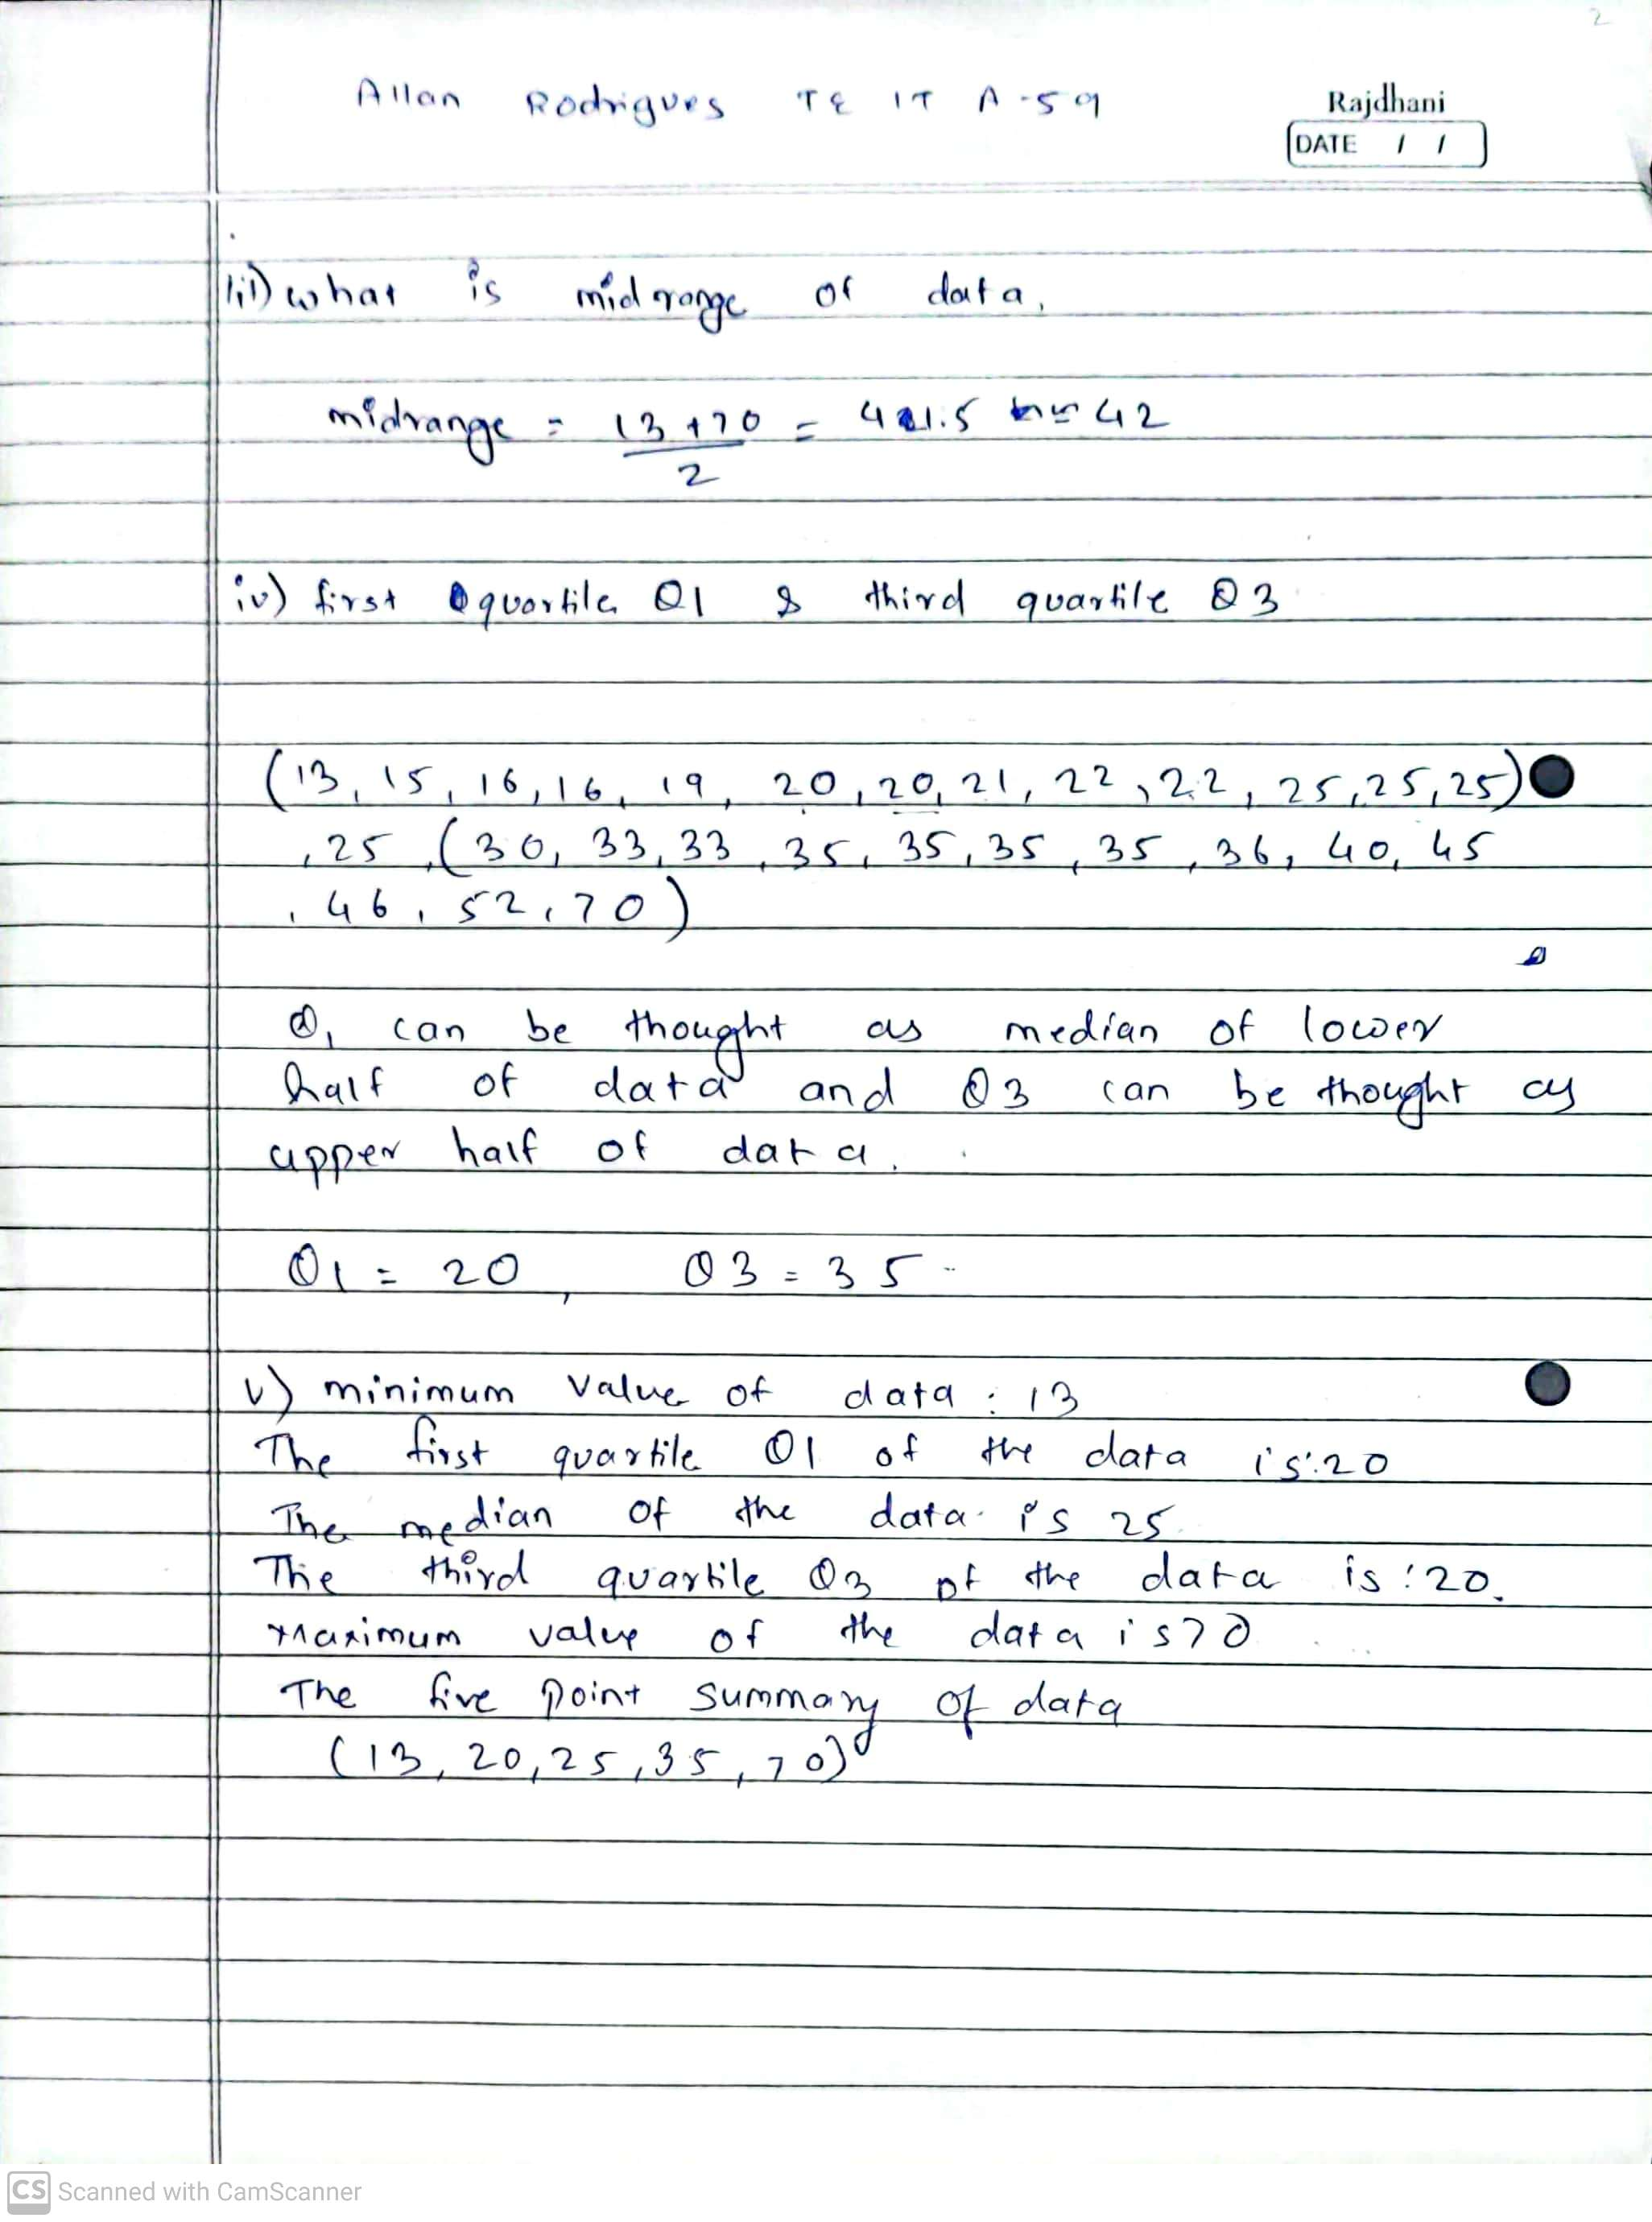 2
Allan Rodrigues TE IT A-59
Rajdhani
DATE / /
iii) what is midrange of data,
midrange = 13+70 = 41.5 42
2
iv) first quartile Q1 & third quartile Q3
(13, 15, 16, 16, 19, 20, 20, 21, 22, 22, 25, 25, 25)
, 25, (30, 33, 33, 35, 35, 35, 35, 36, 40, 45
, 46, 52, 70)
Q1 can be thought as median of lower
half of data and Q3 can be thought as
upper half of data.
Q1 = 20, Q3 = 35
v) minimum value of data : 13
The first quartile Q1 of the data is: 20
The median of the data is 25
The third quartile Q3 of the data is : 20.
Maximum value of the data is 70
The five point summary of data
(13, 20, 25, 35, 70)
CS Scanned with CamScanner